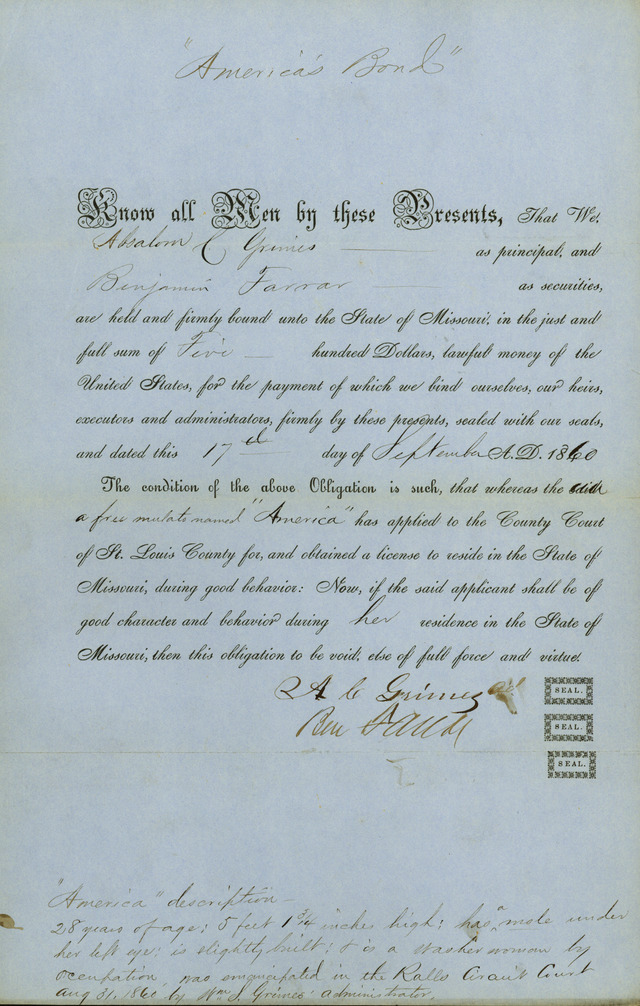 "America's Bond"
Know all Men by these Presents, That We,
Absalom C Grimes as principal, and
Benjamin Farrar as securities,
are held and firmly bound unto the State of Missouri, in the just and
full sum of Five hundred Dollars, lawful money of the
United States, for the payment of which we bind ourselves, our heirs,
executors and administrators, firmly by these presents, sealed with our seals,
and dated this 17th day of September A.D. 1860
The condition of the above Obligation is such, that whereas the said
a free mulato named "America" has applied to the County Court
of St. Louis County for, and obtained a license to reside in the State of
Missouri, during good behavior: Now, if the said applicant shall be of
good character and behavior during her residence in the State of
Missouri, then this obligation to be void, else of full force and virtue.
A C Grimes SEAL.
Ben Farrar SEAL.
SEAL.
"America" description -
28 years of age; 5 feet 1 3/4 inches high; has a mole under
her left eye; is slightly built; & is a washer woman by
occupation, was emancipated in the Ralls Circuit Court
Aug 31, 1860 by Wm J. Grimes administrator.